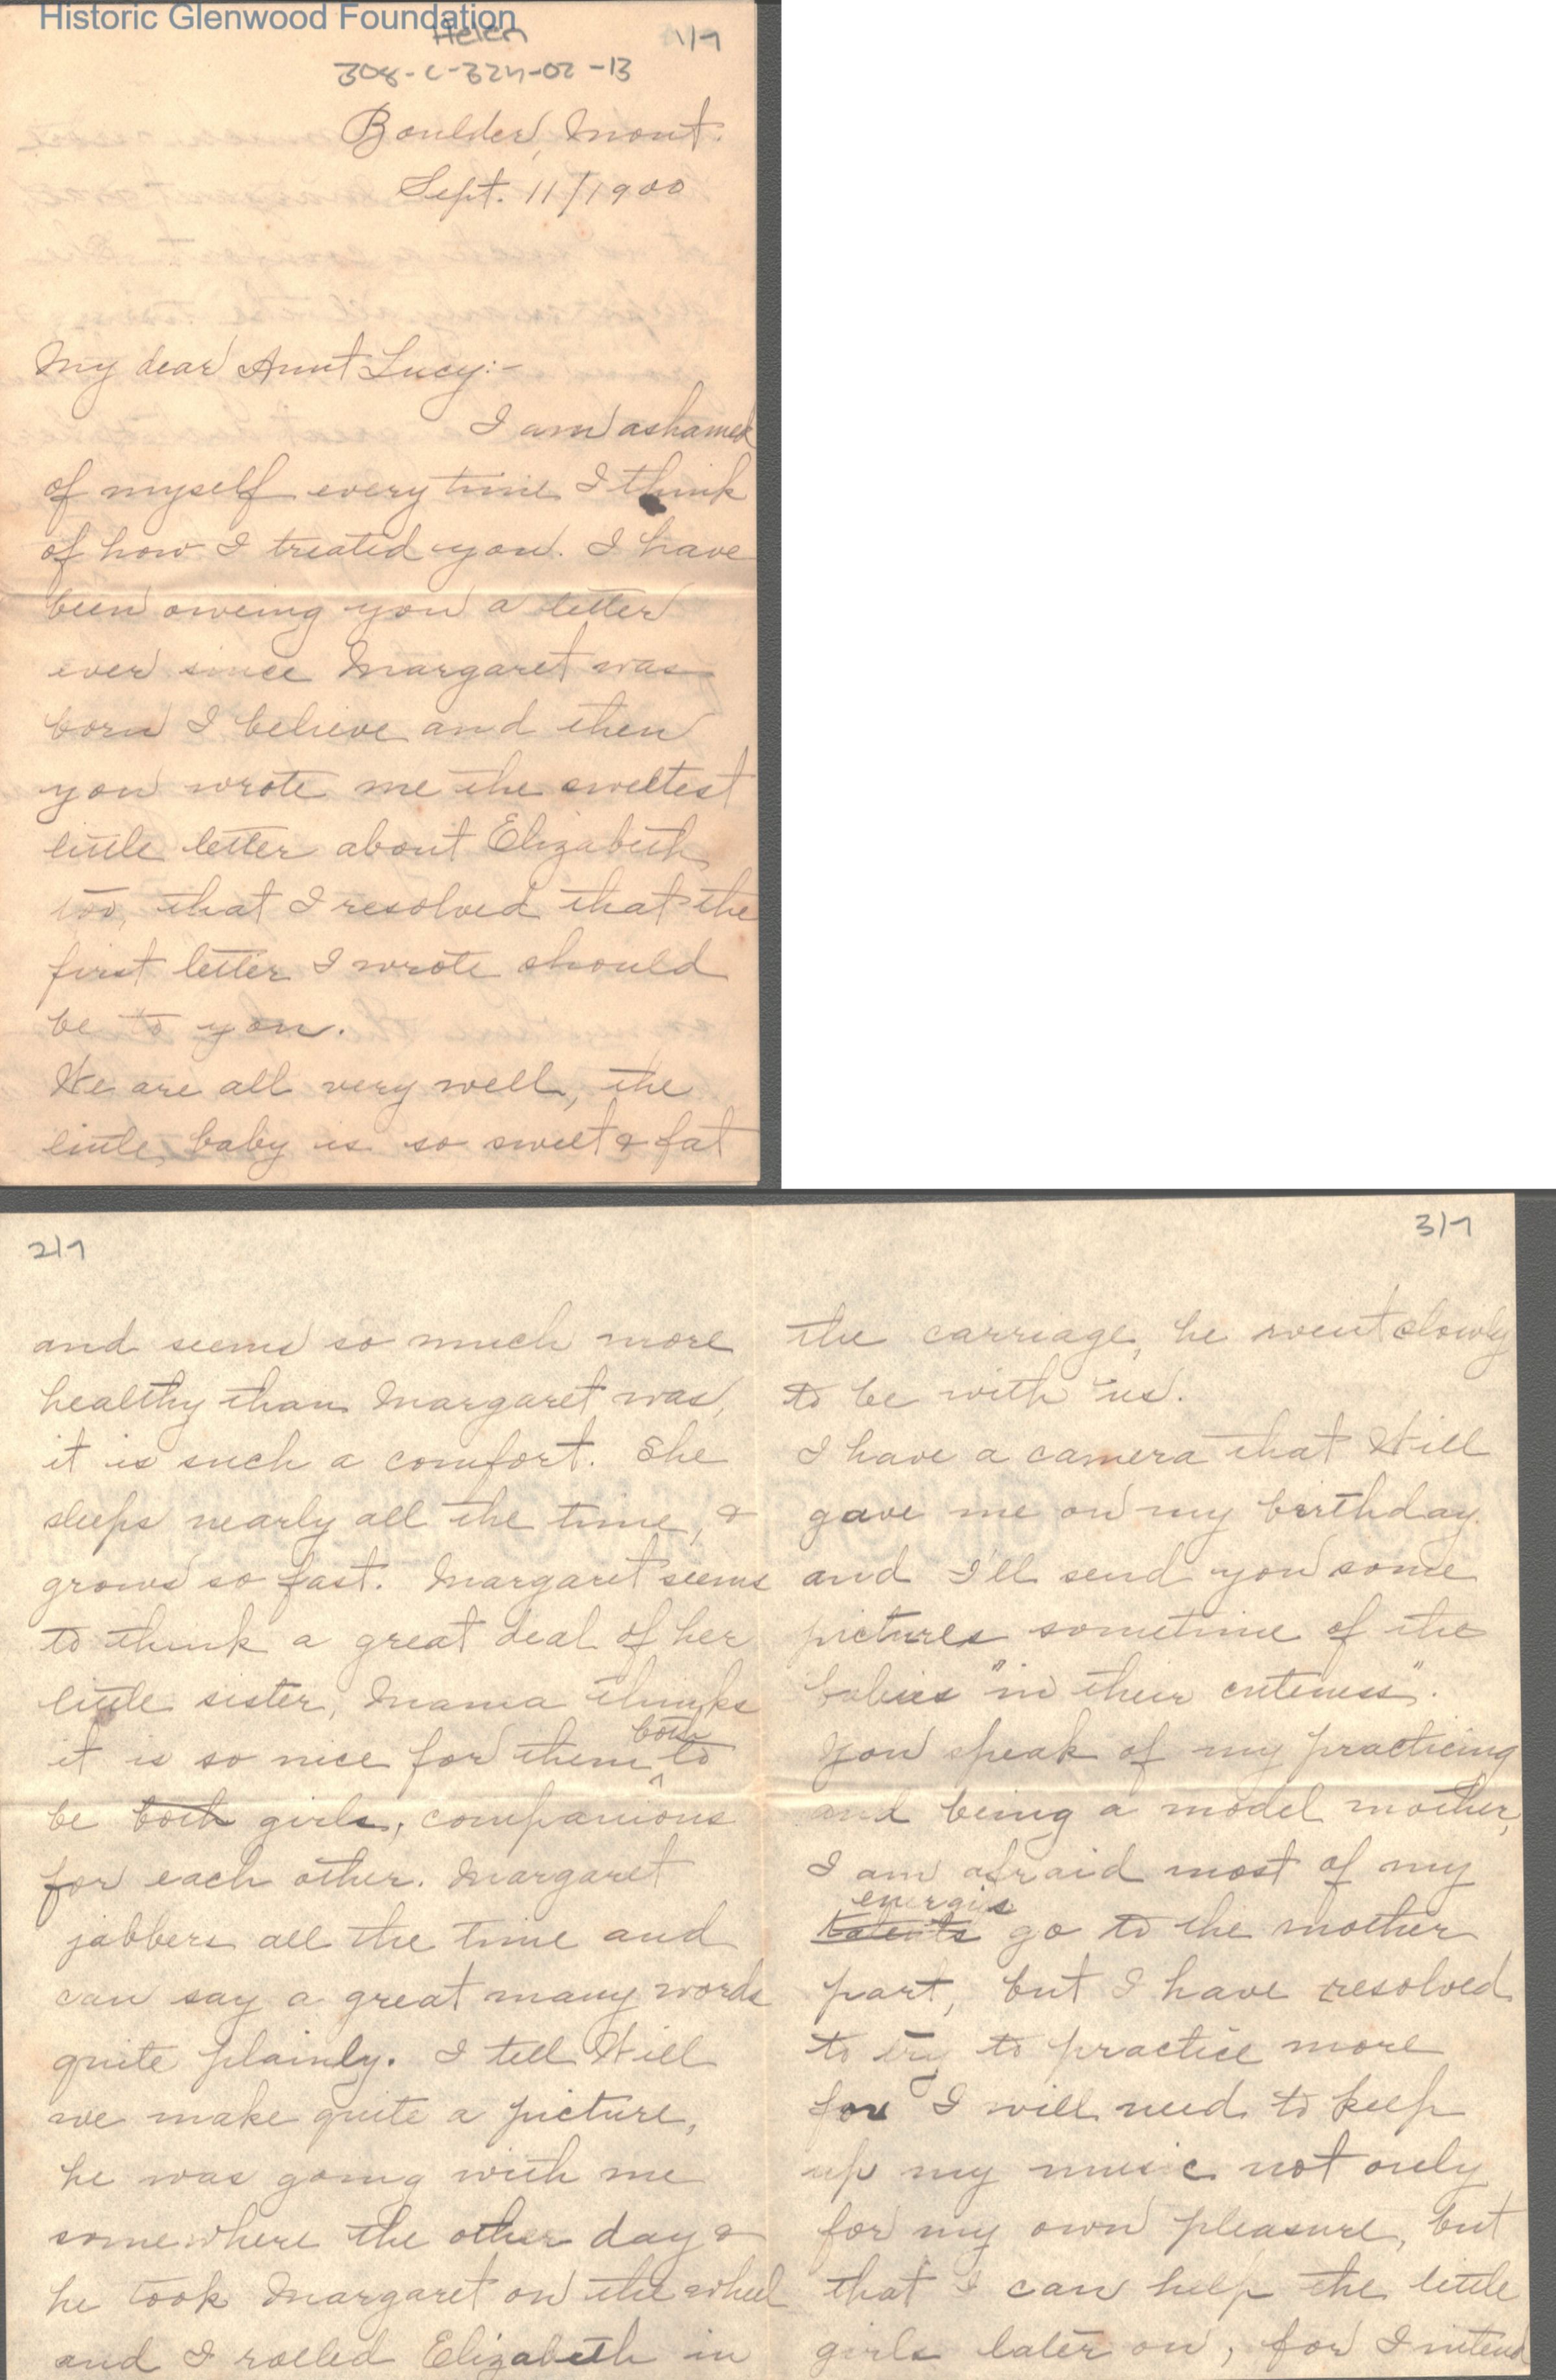 Historic Glenwood Foundation
Helen
1/7
308-C-324-02-13
Boulder, Mont.
Sept. 11/1900
My dear Aunt Lucy:-
I am ashamed
of myself every time I think
of how I treated you. I have
been oweing you a letter
ever since Margaret was
born I believe and then
you wrote me the sweetest
little letter about Elizabeth
too, that I resolved that the
first letter I wrote should
be to you.
We are all very well, the
little baby is so sweet & fat
2/7
and seems so much more
healthy than Margaret was,
it is such a comfort. She
sleeps nearly all the time, &
grows so fast. Margaret seems
to think a great deal of her
little sister, Mama thinks
both
it is so nice for them to
be both girls, companions
for each other. Margaret
jabbers all the time and
can say a great many words
quite plainly. I tell Will
we make quite a picture,
he was going with me
somewhere the other day &
he took Margaret on the wheel
and I rolled Elizabeth in
3/7
the carriage, he went slowly
to be with us.
I have a camera that Will
gave me on my birthday
and I'll send you some
pictures sometime of the
babies "in their cuteness".
You speak of my practicing
and being a model mother,
I am afraid most of my
energies
talents go to the mother
part, but I have resolved
to try to practice more
for I will need to keep
up my music not only
for my own pleasure, but
that I can help the little
girls later on, for I intend